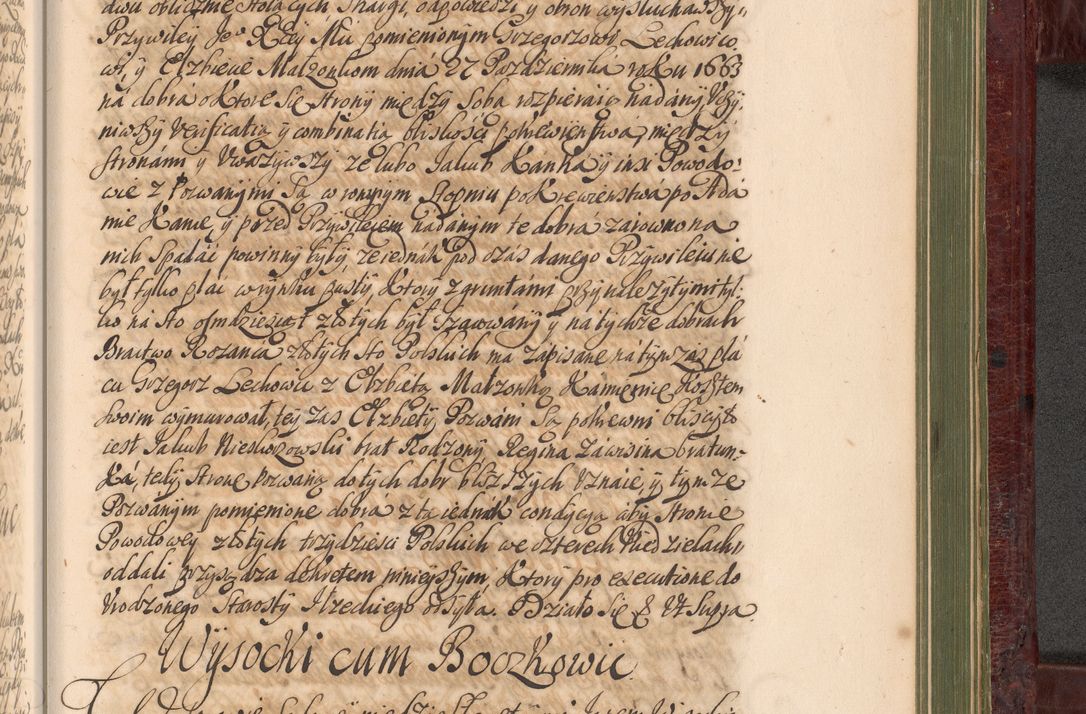 dwu oblicznie stoiących skargi, odpowiedzi y obron wysłuchawszy,
Przywiley Je° Kŕey Mći pomienionym Grzegorzowi Lechowico
wi, y Elzbiecie Małzonkom dnia 27 Pazdziernika roku 1663
ná dobrá o ktore się strony między sobą rozpieraią nádány Uczy,
niwszy Verificatią y combinatią bliskości pokrewienstwá, między
stronámi y Uwazywszy ze lubo Jakub Kanka y insi Powodo,
wie z Pozwánymi Są w rownym stopniu pokrewienstwa po Ada
mie Kanie, y przed Przywileiem nádanym te dobrá zarowno na
nich spadáć powinny były, ze iednák pod czás danego Przywileiu nie
był tylko plác w rynku pusty, ktory z gruntámi przynależytymi tyl,
ko ná sto osmdziesiąt złotych był szacowány y ná tychże dobrach
Bractwo Rozanca złotych sto Polskich ma zapisane ná tym zas plá
cu Grzegorz Lechowic z Elzbietą Małzonką Kamienicę kosztem
swoim wymurował, tey zas Elzbiety Pozwáni Są pokrewni bliscy to
iest Jakub Niedwozowski brat Rodzony, Regina Zawisina bratun,
ká, tedy stronę Pozwáną do tych dobr bliższych Uznáie y tymże
Pozwánym pomienione dobrá z tą iednák condycyą aby stronie
Powodowey złotych trzydzieści Polskich we czterech Niedzielách
oddali przysądza dekretem ninieyszym, Ktory pro executione do
Urodzonego Starosty Ilzeckiego odsyła. Działo się & Ut Supra.
Wysocki cum Boczkowic